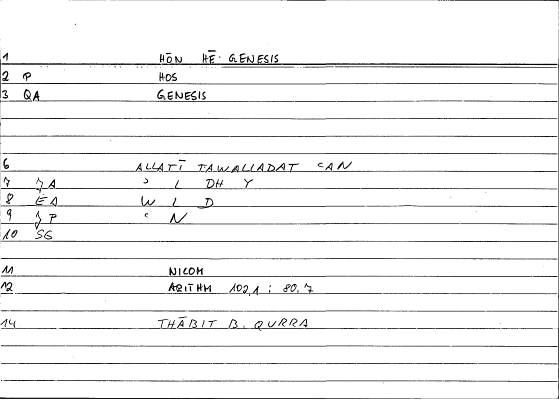 1 HŌN HĒ GENESIS
2 P HOS
3 QA GENESIS
6 ALLATĪ TAWALLADAT ʿAN
7 ʒA ʾ L DH Y
8 EA W L D
9 ʒP ʿ N
10 SG
11 NICOM
12 ARITHM 102,1 : 80.7
14 THĀBIT B. QURRA